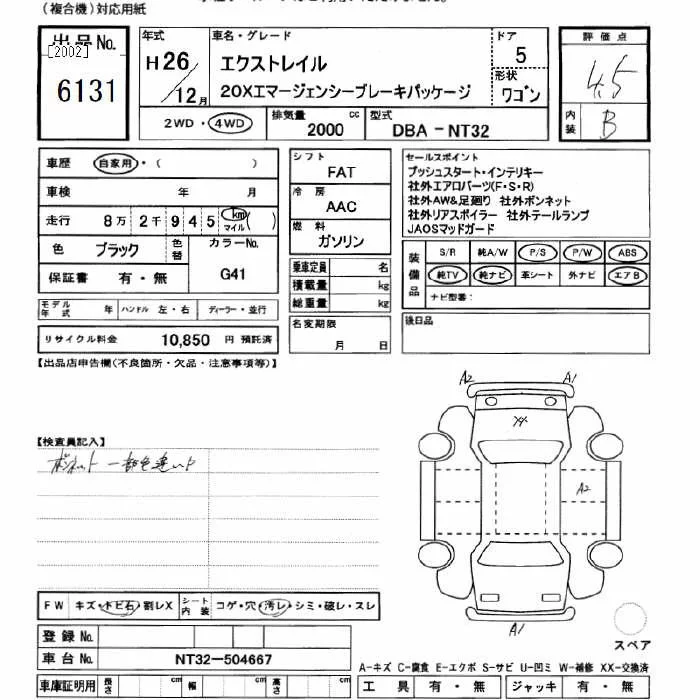 (複合機)対応用紙
出品No.
[2002]
6131
年式
H26/12月
車名・グレード
エクストレイル
20Xエマージェンシーブレーキパッケージ
ドア
5
形状
ワゴン
評価点
4.5
内装
B
2WD・4WD
排気量
2000 cc
型式
DBA-NT32
車歴 自家用・( )
車検 年 月
走行 8万 2千 9 4 5 km マイル ( )
色 ブラック 色替
カラーNo.
G41
保証書 有・無
モデル年式 年 ハンドル 左・右 ディーラー・並行
リサイクル料金 10,850 円 預託済
シフト
FAT
冷房
AAC
燃料
ガソリン
乗車定員 名
積載量 kg
総重量 kg
名変期限
月 日
セールスポイント
プッシュスタート・インテリキー
社外エアロパーツ(F・S・R)
社外AW&足廻り 社外ボンネット
社外リアスポイラー 社外テールランプ
JAOSマッドガード
装備品
S/R 純A/W P/S P/W ABS
純TV 純ナビ 革シート 外ナビ エアB
ナビ型番:
後日品
【出品店申告欄(不良箇所・欠品・注意事項等)】
【検査員記入】
ボンネット 一部色違い
A2 A1
A2
A1
FW キズ・トビ石・割レX シート内装 コゲ・穴・汚レ・シミ・破レ・スレ
登録No.
車台No. NT32-504667
車庫証明用 長さ cm 幅 cm 高さ cm
スペア
A-キズ C-腐食 E-エクボ S-サビ U-凹ミ W-補修 XX-交換済
工具 有・無 ジャッキ 有・無